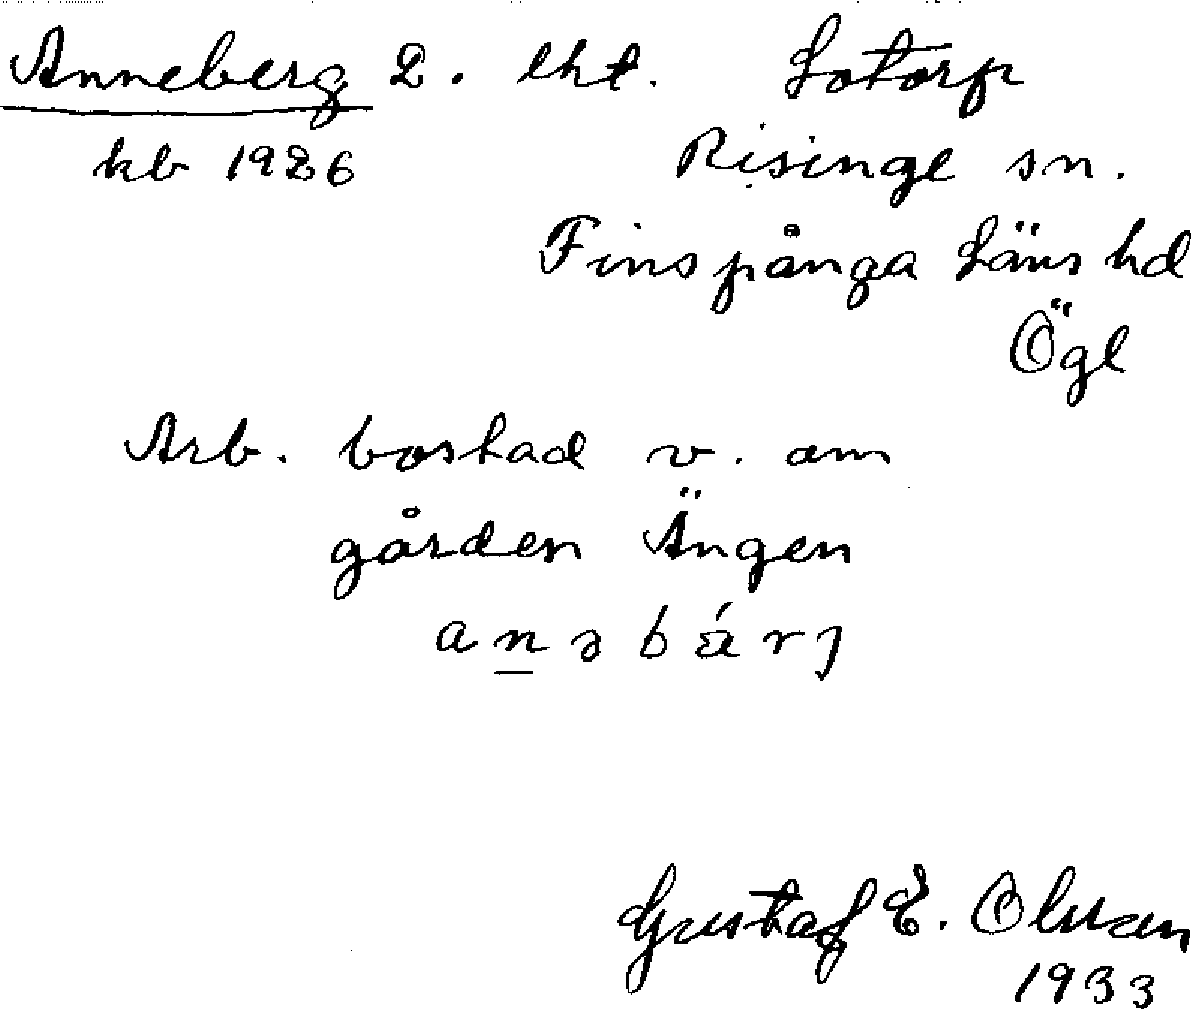 Anneberg 2. lht. Lotorp
kb 1926 Risinge sn.
Finspånga Läns hd
Ögl
Arb. bostad v. om
gården Ängen
a n ə b ä́ r j
Gustaf E. Olsson
1933